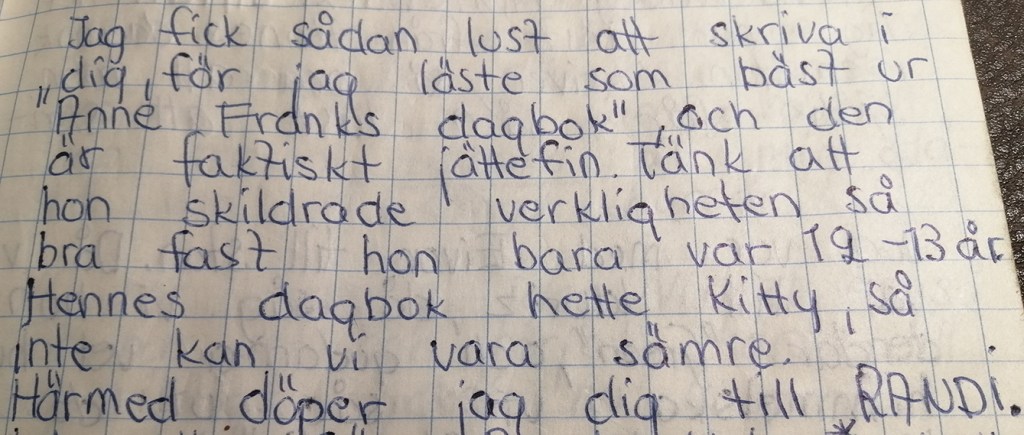 Jag fick sådan lust att skriva i
dig, för jag läste som bäst ur
"Anne Franks dagbok", och den
är faktiskt jättefin. Tänk att
hon skildrade verkligheten så
bra fast hon bara var 12-13 år
Hennes dagbok hette Kitty, så
inte kan vi vara sämre.
Härmed döper jag dig till RANDI.